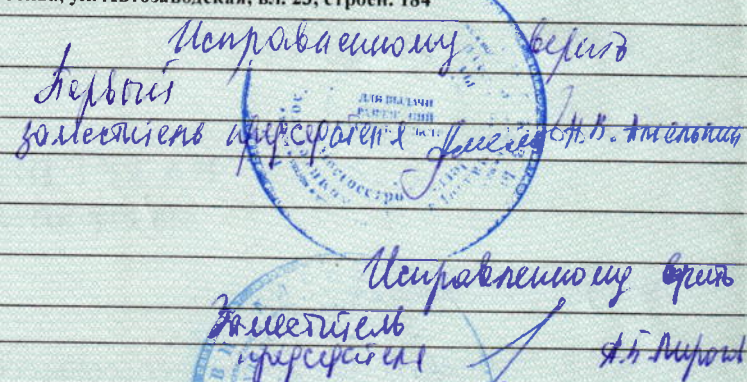 ул. Автозаводская, вл. 23, строен. 184
Исправленному верить
Первый
заместитель председателя Н.В. Амелькин
для выдачи
Исправленному верить
Заместитель
председателя А.Б. Пирогов